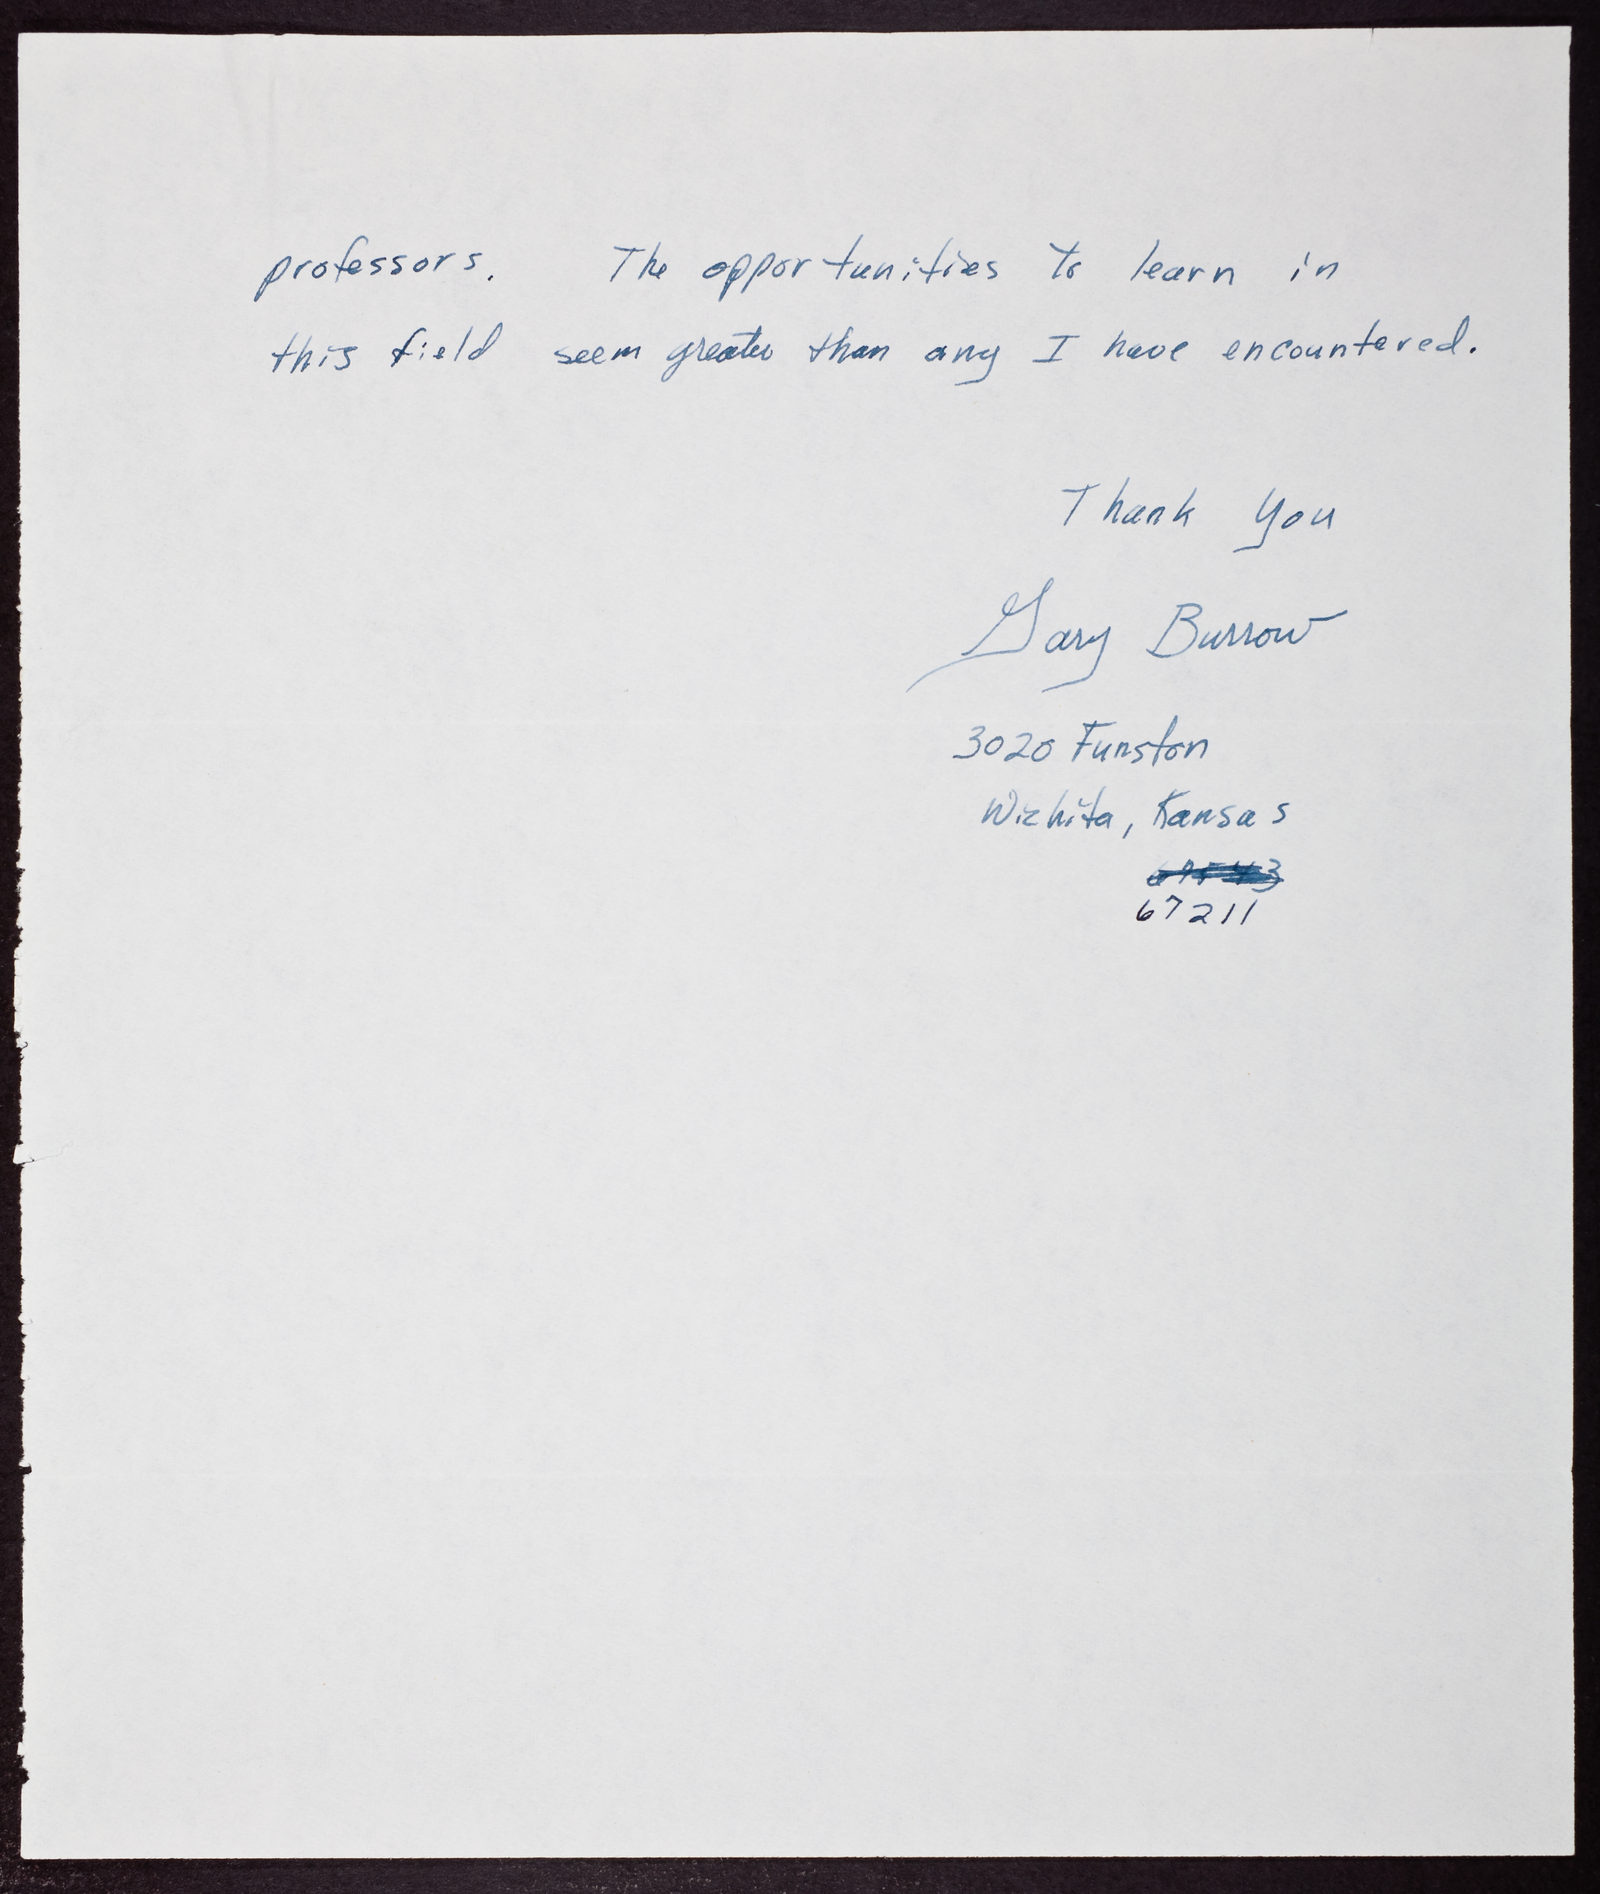 professors. The opportunities to learn in
this field seem greater than any I have encountered.
Thank You
Gary Burrow
3020 Funston
Wichita, Kansas
67211